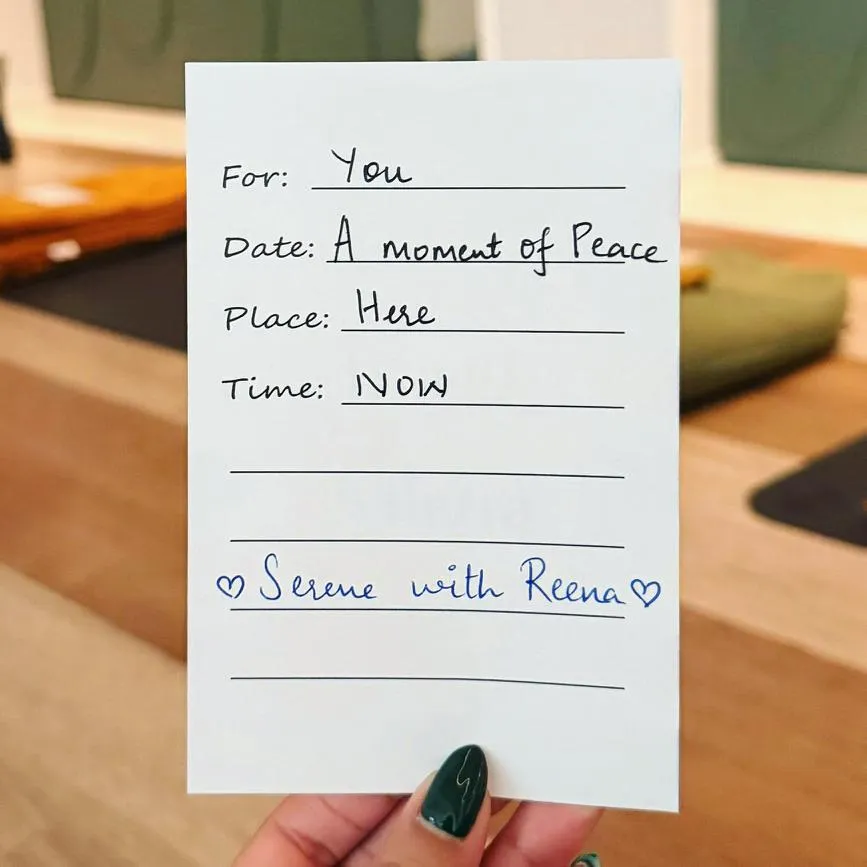 For: You
Date: A moment of Peace
Place: Here
Time: NOW
♡ Serene with Reena ♡